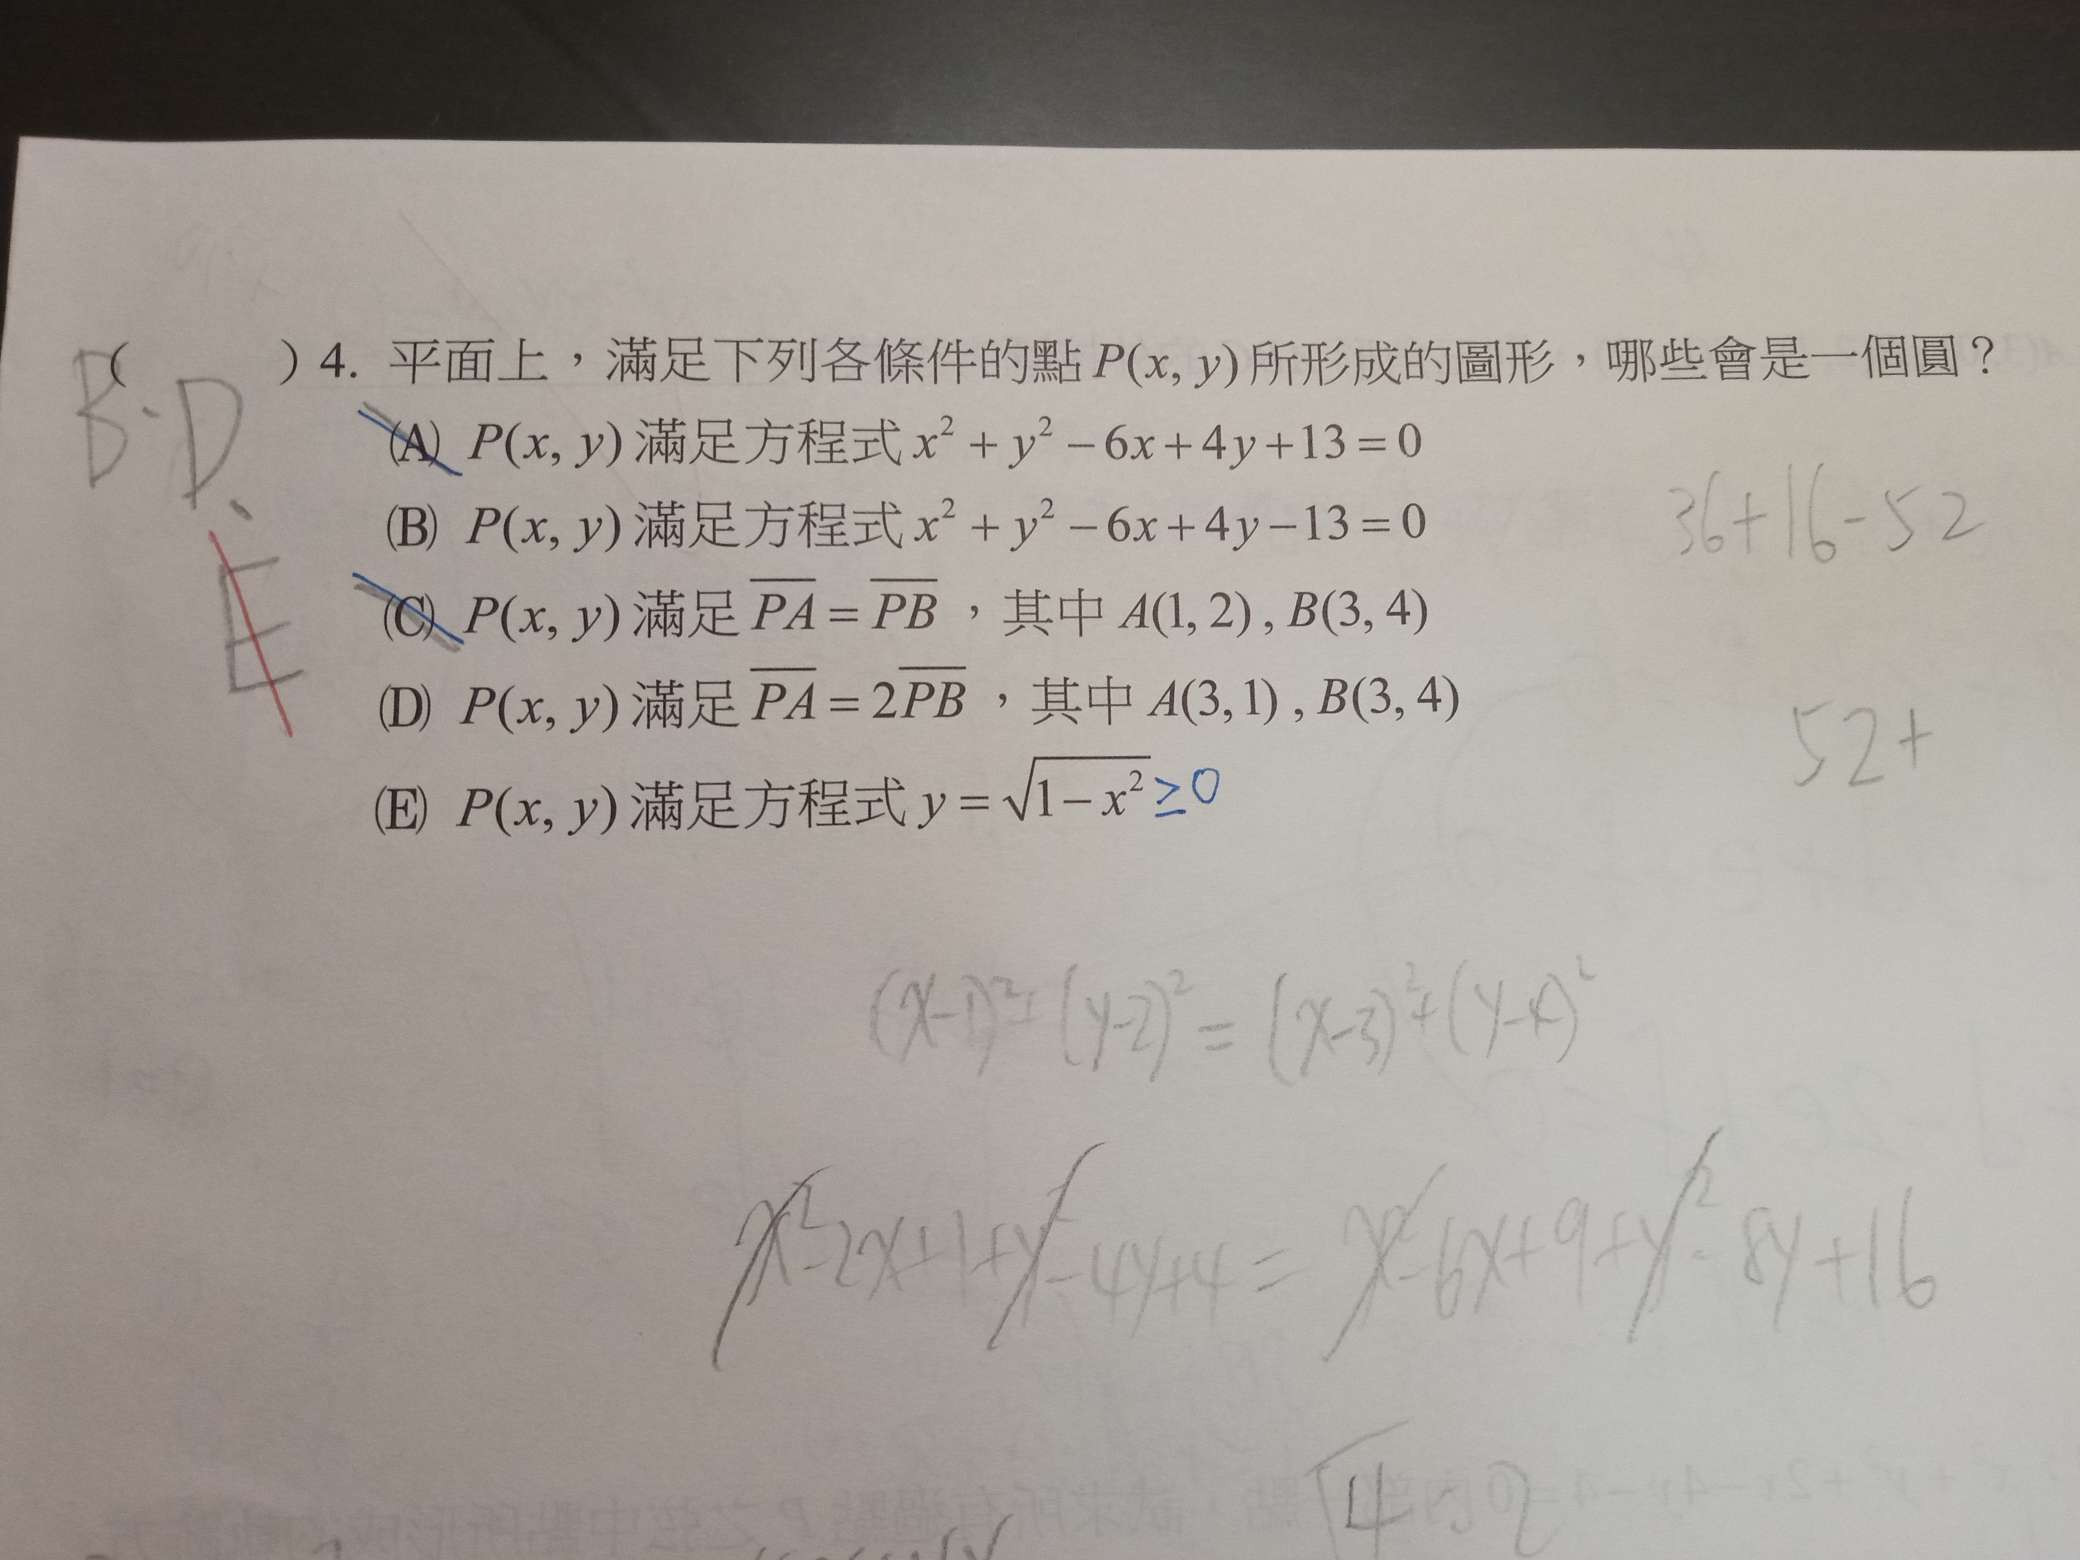 ( ) 4. 平面上，滿足下列各條件的點 P(x, y) 所形成的圖形，哪些會是一個圓？
B、D、
E
(A) P(x, y) 滿足方程式 x² + y² − 6x + 4y + 13 = 0
(B) P(x, y) 滿足方程式 x² + y² − 6x + 4y − 13 = 0
36+16-52
(C) P(x, y) 滿足 PA = PB ，其中 A(1, 2) , B(3, 4)
(D) P(x, y) 滿足 PA = 2PB ，其中 A(3, 1) , B(3, 4)
52+
(E) P(x, y) 滿足方程式 y = √1 − x² ≥0
(x-1)²+(y-2)² = (x-3)²+(y-4)²
x²-2x+1+y²-4y+4 = x²-6x+9+y²-8y+16